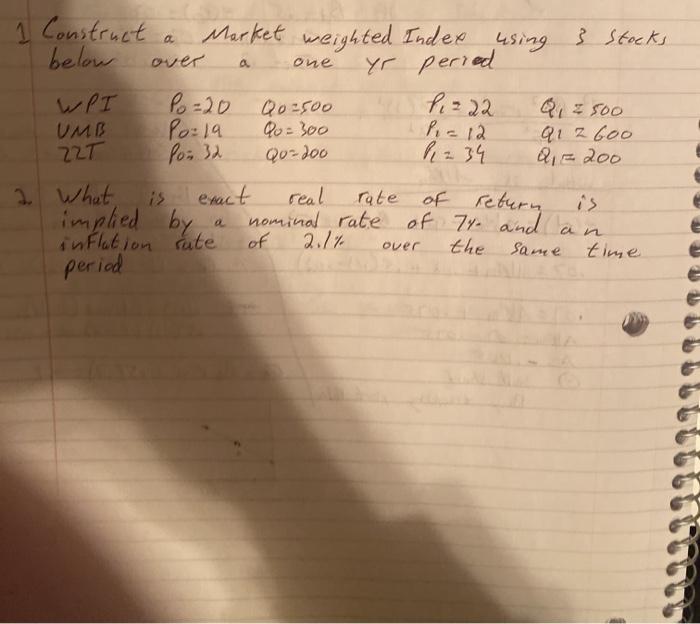 1 Construct a Market weighted Index using 3 Stocks
below over a one yr period
WPI Po=20 Qo=500 P1=22 Q1=500
UMB Po=19 Qo=300 P1=12 Q1=600
ZZT Po=32 Qo=200 P1=34 Q1=200
2 What is exact real rate of return is
implied by a nominal rate of 7% and an
inflation rate of 2.1% over the same time
period